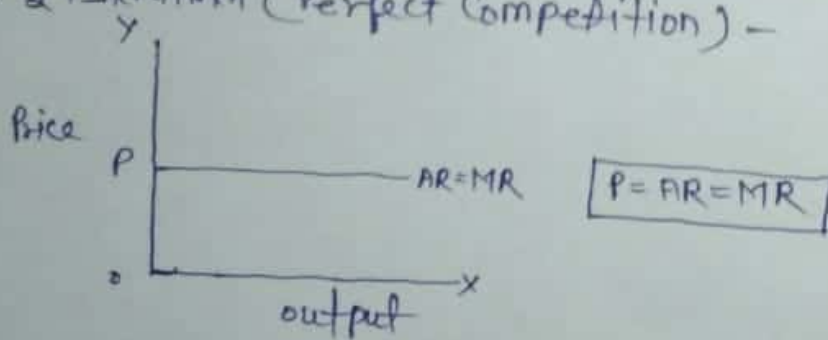 (Perfect Competition) -
Y
Price
P
AR=MR
P=AR=MR
0
X
output